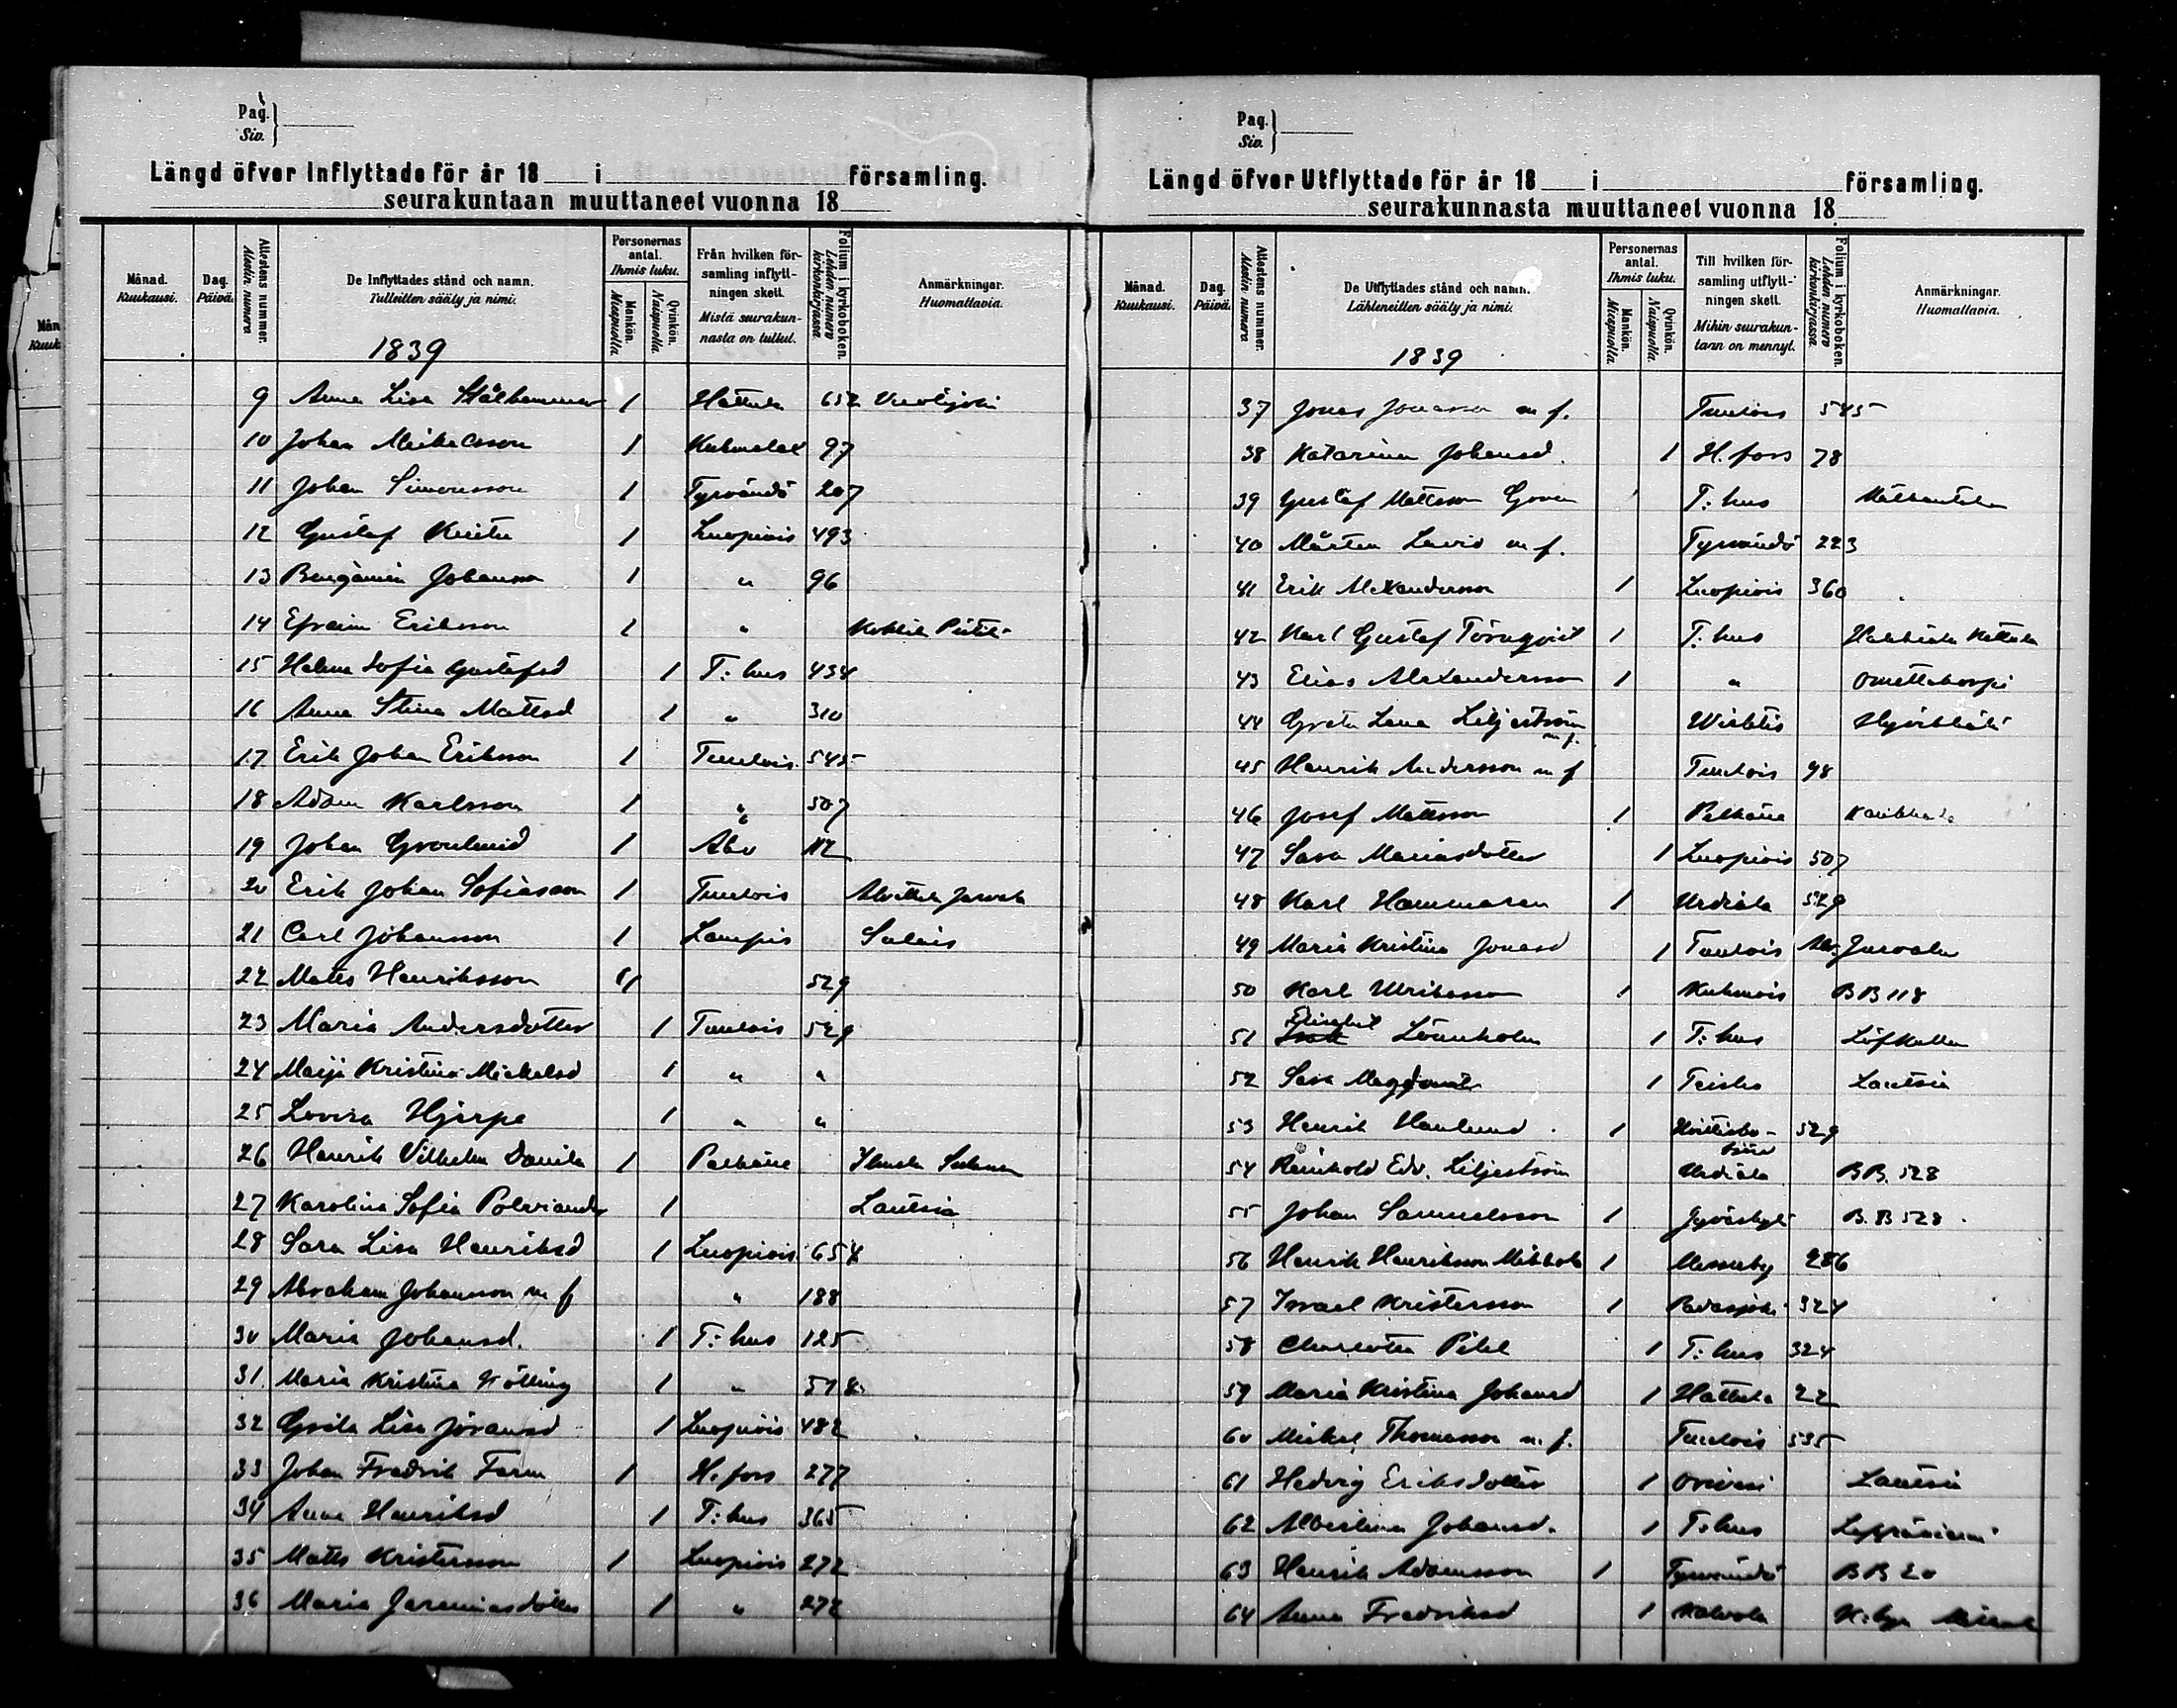 Pag.
Siv.
Längd öfver Inflyttade för år 18 i församling.
seurakuntaan muuttaneet vuonna 18
Månad. Kuukausi. Dag. Päivä. Attestens nummer. Atestin numero De Inflyttades stånd och namn. Tulleitten sääty ja nimi. Personernas antal. Ihmis luku. Mankön. Miespuolia Qvinkön. Naispuolia. Från hvilken församling inflyttningen skett. Mistä seurakunnasta on tullut. Folium i kyrkoboken. Lehden numero kirkonkirjassa Anmärkningar. Huomattavia.
1839
9 Anna Lisa Stålhammar 1 Hattula 652
10 Johan Mickelsson 1 Kuhmalax 97
11 Johan Simonsson 1 Tyrvändö 207
12 Gustaf 1 Luopiois 493
13 Benjamin Johansson 1 " 96
14 Efraim Eriksson 1 "
15 Helena Sofia Gustafsd 1 T:hus 434
16 Anna Stina Mattsd 1 " 310
17 Erik Johan Eriksson 1 Tuulois 545
18 Adam Karlsson 1 " 507
19 Johan Grönlund 1 Åbo 112
20 Erik Johan Sofiasson 1 Tuulois
21 Carl Johansson 1 Lampis
22 Matts Henriksson 529
23 Maria Andersdotter 1 Tuulois 529
24 Maija Kristina Mickelsd 1 " "
25 Lovisa Hjerpe 1 " "
26 Henrik Vilhelm Danila 1 Pälkäne
27 Karolina Sofia Polviander 1 Lautsia
28 Sara Lisa Henriksd 1 Luopiois 654
29 Abraham Johansson m f " 188
30 Maria Johansd. 1 T:hus 125
31. Maria Kristina Kölling 1 " 518
32 Greta Lisa Göransd 1 Luopiois 482
33 Johan Fredrik Farm 1 H.fors 277
34 Anna Henriksd 1 T:hus 365
35 Matts Kristersson 1 Luopiois 272
36 Maria Jeremiasdotter 1 " 272
Pag.
Siv.
Längd öfver Utflyttade för år 18 i församling.
seurakunnasta muuttaneet vuonna 18
Månad. Kuukausi. Dag. Päivä. Attestens nummer. Atestin numero De Utflyttades stånd och namn. Lähteneitten sääty ja nimi. Personernas antal. Ihmis luku. Mankön. Miespuolia Qvinkön. Naispuolia. Till hvilken församling utflyttningen skett. Mihin seurakuntaan on mennyt. Folium i kyrkoboken. Lehden numero kirkonkirjassa Anmärkningar. Huomattavia.
1839
37 Jonas Jonasson m f. Tuulois 545
38 Katarina Johansd. 1 H.fors 78
39 Gustaf Mattsson T:hus
40 Mårten m f. Tyrvändö 223
41 Erik Alexandersson 1 Luopiois 360
42 Karl Gustaf Törnqvist 1 T:hus
43 Elias Alexandersson 1 "
44 Greta Lena Liljeström m f.
45 Henrik Andersson m f Tuulois 98
46 Josef Mattsson 1 Pälkäne
47 Sara Mariasdotter 1 Luopiois 507
48 Karl Hammaren 1 Urdiala 529
49 Maria Kristina Jonasd 1 Tuulois
50 Karl Ulriksson 1 Kuhmois BB 118
51 Elisabet Lönnholm 1 T:hus
52 Sara 1 Teisko Lautsia
53 Henrik Hanlund 1 529
54 Reinhold Edv. Liljeström Urdiala BB. 528
55 Johan Samuelsson 1 Jyväskylä B.B 528.
56 Henrik Henriksson Mikkola 1 Messuby 286
57 Israel Kristersson 1 Padasjoki 324
58 Charlotta Pihl 1 T:hus 324
59 Maria Kristina Johansd 1 Hattula 22
60 Mickel Thomasson m.f. Tuulois 535
61 Hedvig Eriksdotter 1 Orivesi Lautsia
62 Albertina Johansd. 1 T:hus
63 Henrik Adamsson 1 Tyrvändö BB 20
64 Anna Fredriksd 1 Kalvola